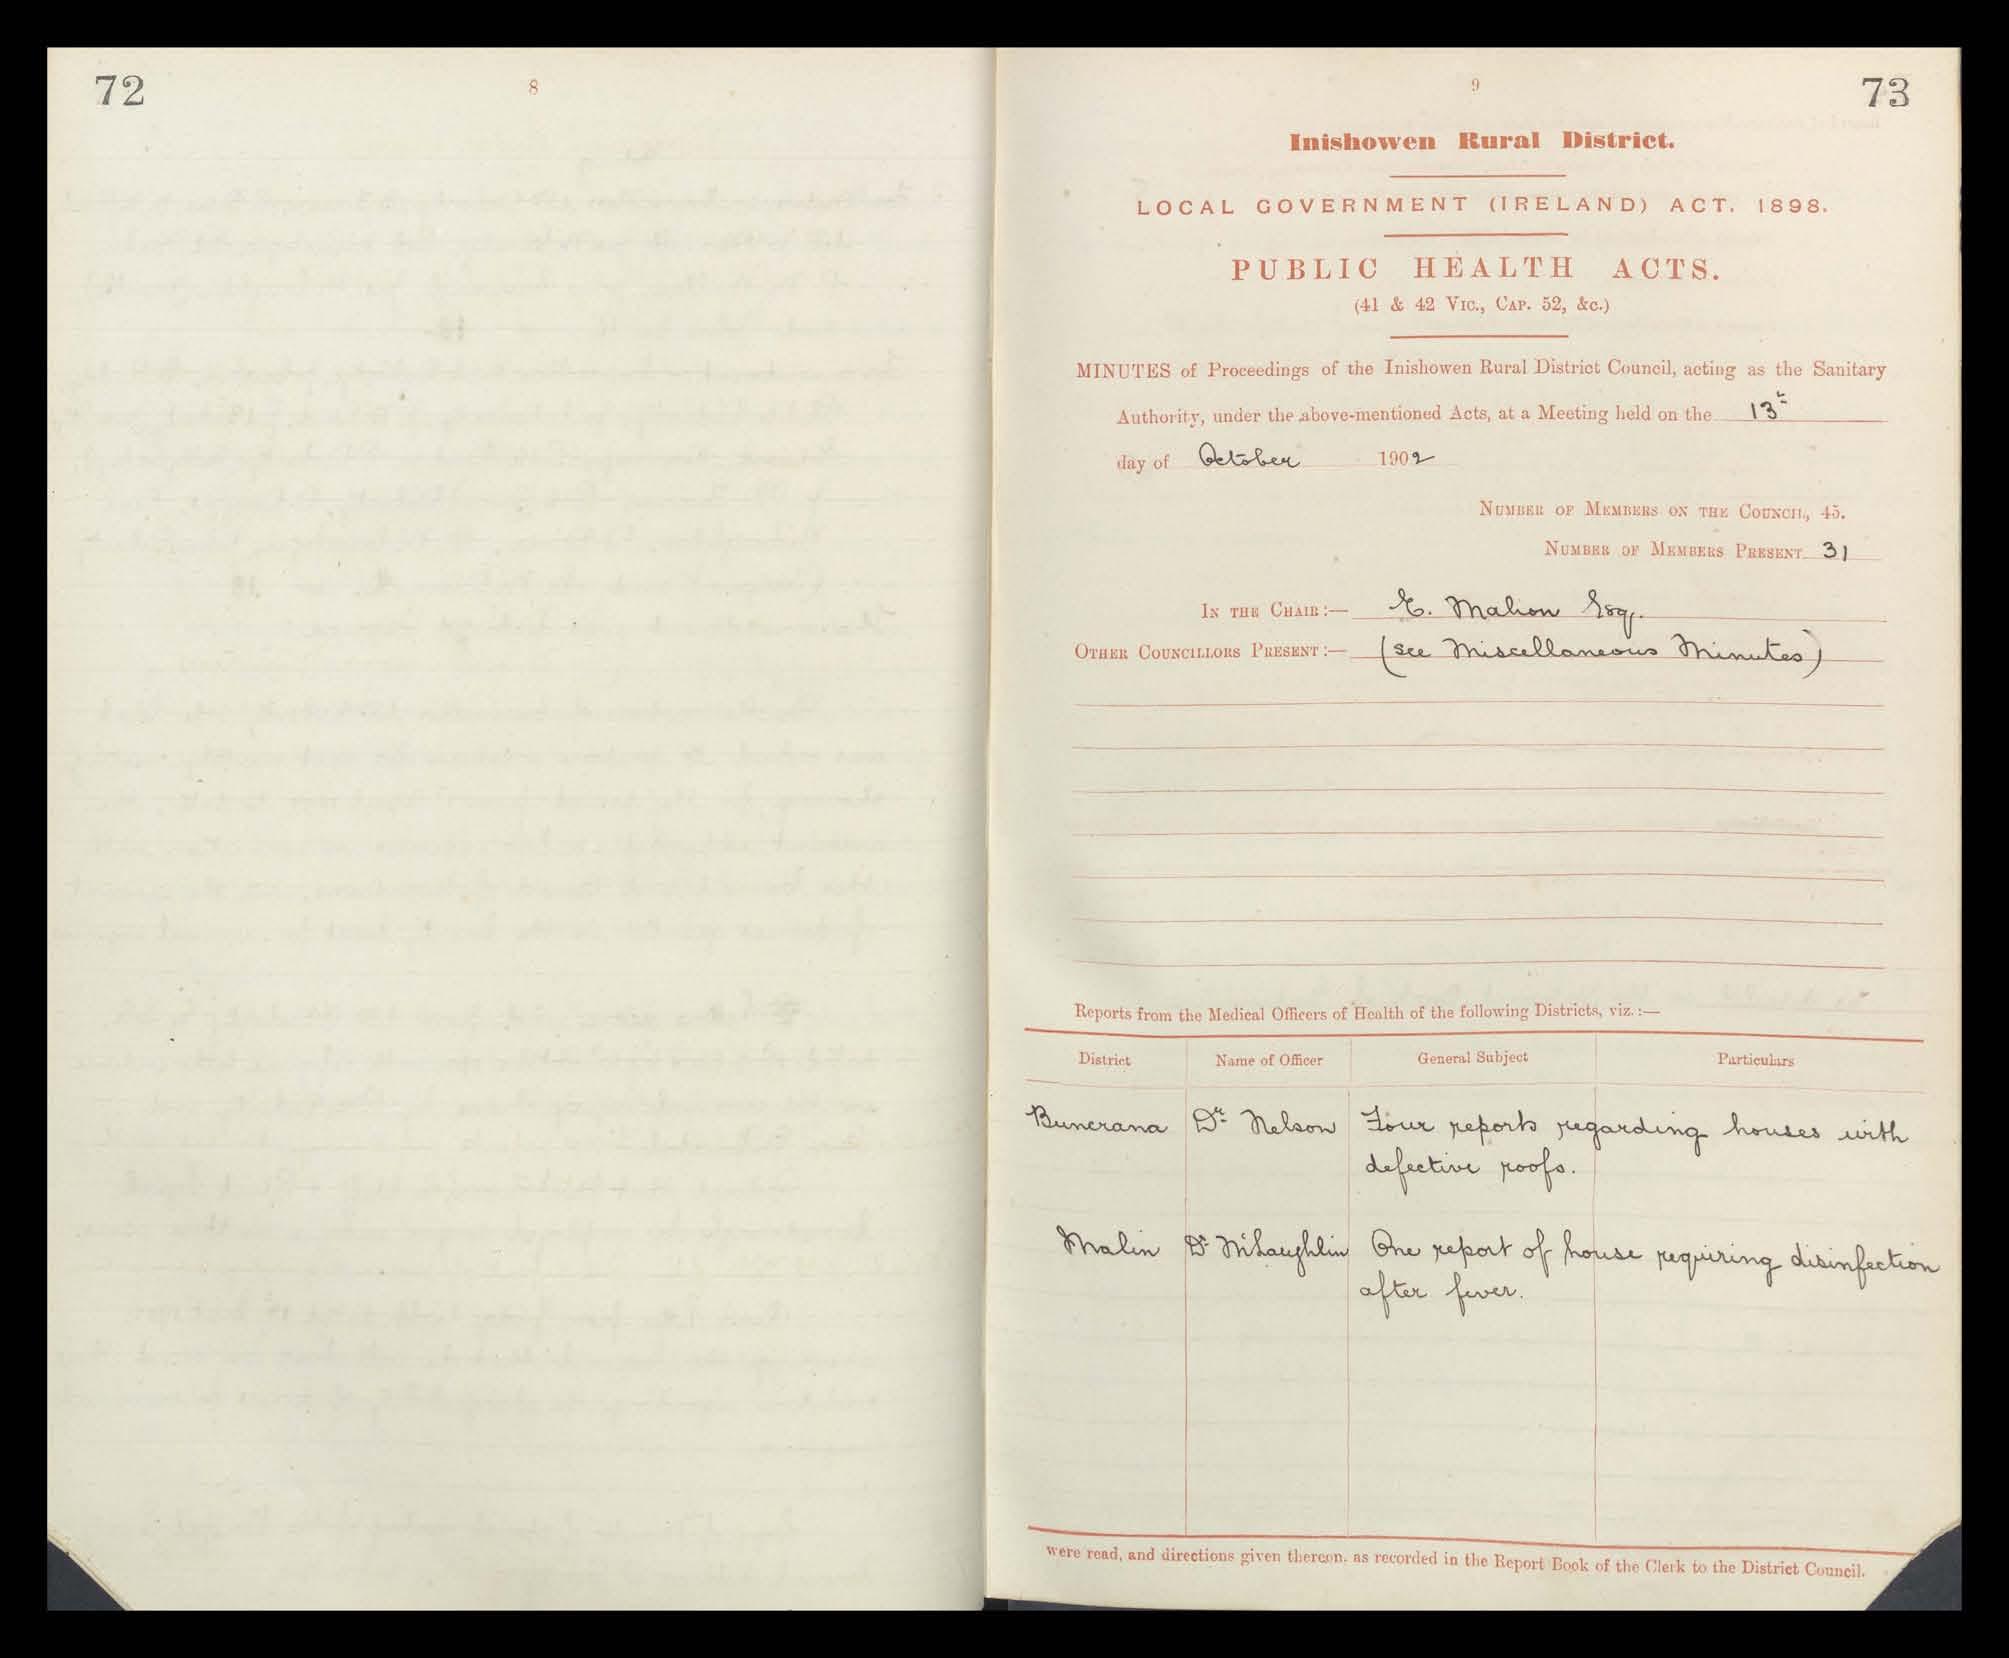 72
8
9
73
Inishowen Rural District.
LOCAL GOVERNMENT (IRELAND) ACT, 1898.
PUBLIC HEALTH ACTS.
(41 & 42 Vic., Cap. 52, &c.)
MINUTES of Proceedings of the Inishowen Rural District Council, acting as the Sanitary
Authority, under the above-mentioned Acts, at a Meeting held on the 13th
day of October 1902
Number of Members on the Council, 45.
Number of Members Present 31
In the Chair:— E. Mahon Esq.
Other Councillors Present:— (see Miscellaneous Minutes)
Reports from the Medical Officers of Health of the following Districts, viz.:—
District Name of Officer General Subject Particulars
Buncrana Dr Nelson Four reports regarding houses with
defective roofs.
Malin Dr McLaughlin One report of house requiring disinfection
after fever.
were read, and directions given thereon, as recorded in the Report Book of the Clerk to the District Council.